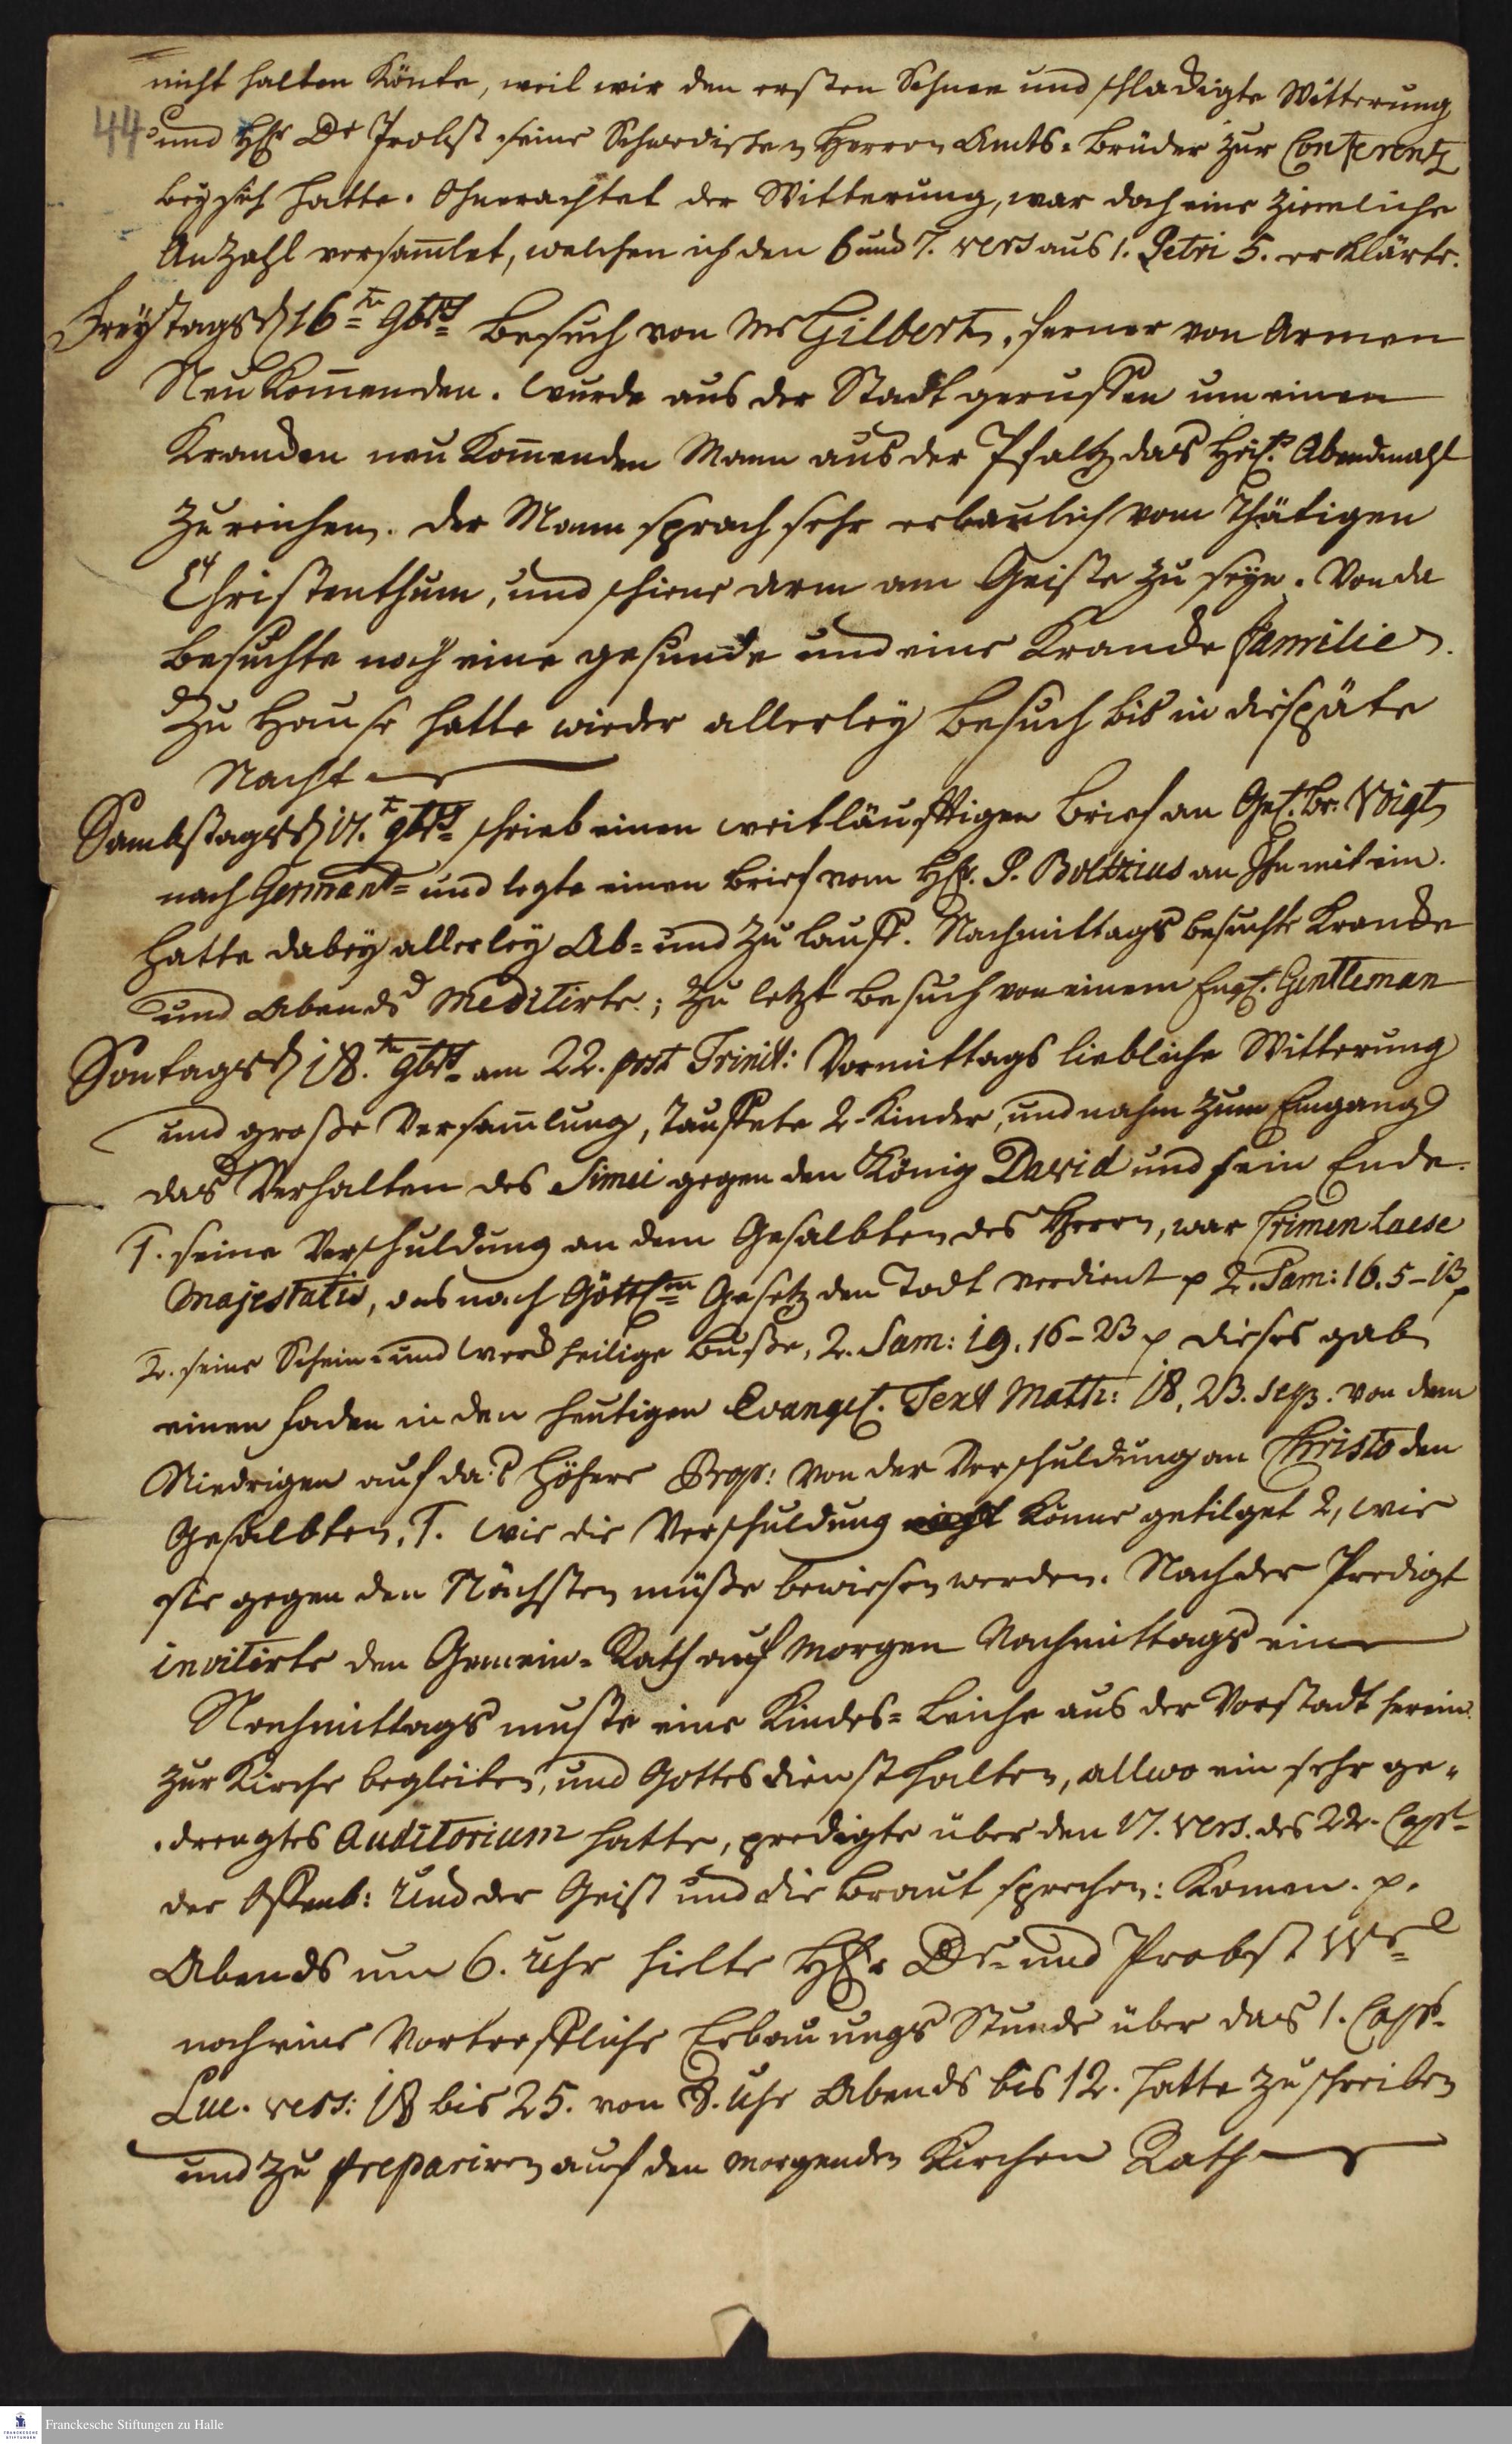 nicht halten Könte, weil wir den ersten Schnee und schlackigte Witterung
44 und HE. Dr Probst seine Schwedischen Herren Amts-Brüder zur Conferentz
bey sich hatte. Ohnerachtet der Witterung, war doch eine ziemliche
Anzahl versam̅let, welchen ich den 6 und 7. vers aus 1. Petri 5. erklärte.
Freytags d 16ten 9br. Besuch von Mr Gilbert, ferner von Armen
Neukom̅enden. Wurde aus der Stadt geruffen um einen
Krancken neu kom̅enden Mann aus der Pfaltz das Heil. Abendmahl
zu reichen. Der Mann sprach sehr erbaulich vom Thätigen
Christenthum, und schiene arm am Geiste zu seyn. Von da
besuchte noch eine gesunde und eine Krancke familie.
Zu Hause hatte wieder allerley Besuch bis in die späte
Nacht
Sambstags d 17.ten 9br. schrieb einen weitläufftigen Brief an Gel. Br. Voigt
nach Germant= und legte einen Brief vom HE. P. Boltzius an Ihn mit ein.
hatte dabey allerley Ab- und Zu lauff. Nachmittags besuchte Krancke
und Abends Meditirte; zu letzt besuch von einem Engl. Gentleman
Sontags d 18.ten 9br. am 22. post Trinit: Vormittags liebliche Witterung
und große Versam̅lung, tauffete 2 Kinder, und nahm zum Eingang
das Verhalten des Simei gegen den König David und sein Ende.
1. seine Verschuldung an dem Gesalbten des Herrn, war Crimen laese
Majestatis, das nach Göttlm Gesetz den Todt verdient p 2. Sam: 16. 5-13 p
2. seine Schein- und Werckheilige Buße, 2. Sam: 19. 16-23 p dieses gab
einen faden in den heutigen Evangel. Text Matth: 18, 23. seqq. von dem
Niedrigen auf das höhere Prop: Von der Verschuldung an Christo den
Gesalbten, 1. wie die Verschuldung könne getilget 2, wie
sie gegen den Nächsten müße bewiesen werden. Nach der Predigt
invitirte den Gemein-Rath auf Morgen Nachmittags ein
Nachmittags muste eine Kindes-Leiche aus der Vorstadt herein
zur Kirche begleiten, und Gottesdienst halten, allwo ein sehr ge-
drengtes Auditorium hatte, predigte über den 17. vers. des 22. Capt
der Offenb: Und der Geist und die Braut sprechen: Komm. p.
Abends um 6. Uhr hielte HE. Dr und Probst Wr
noch eine Vortreffliche Erbauungs Stunde über das 1. Capt.
Luc. vers: 18 bis 25. von 8. Uhr Abends bis 12. hatte zu schreiben
und zu prepariren auf den morgenden Kirchen Rath
Franckesche Stiftungen zu Halle